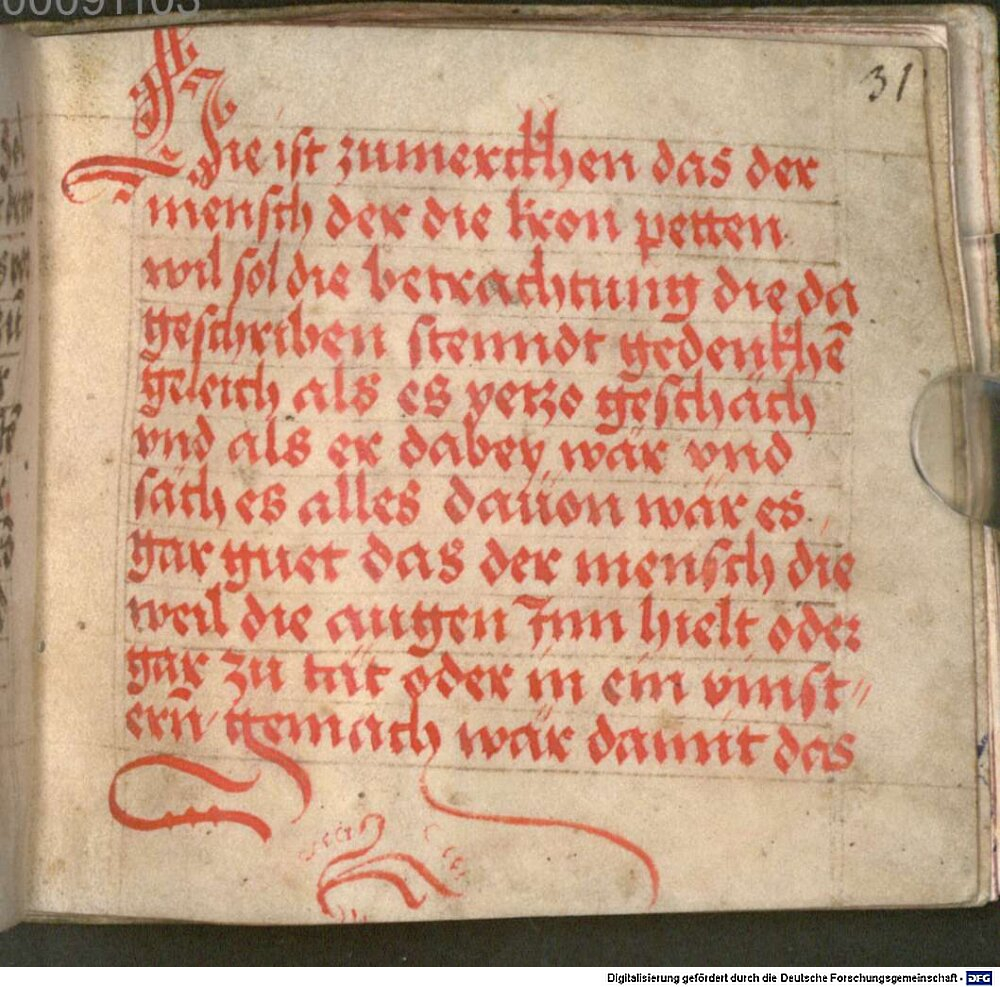 00091103
31
Hie ist zumerckhen das der
mensch der die kron petten
wil sol die betrachtung die da
geschriben stenndt gedenkhē
geleich als es yetzo geschach
vnd als er dabey wär vnd
säch es alles dauon wär es
gar guet das der mensch die
weil die augen Inn hielt oder
gar zu tät oder in ein vinst⸗
ern gemach wär damit das
Digitalisierung gefördert durch die Deutsche Forschungsgemeinschaft - DFG